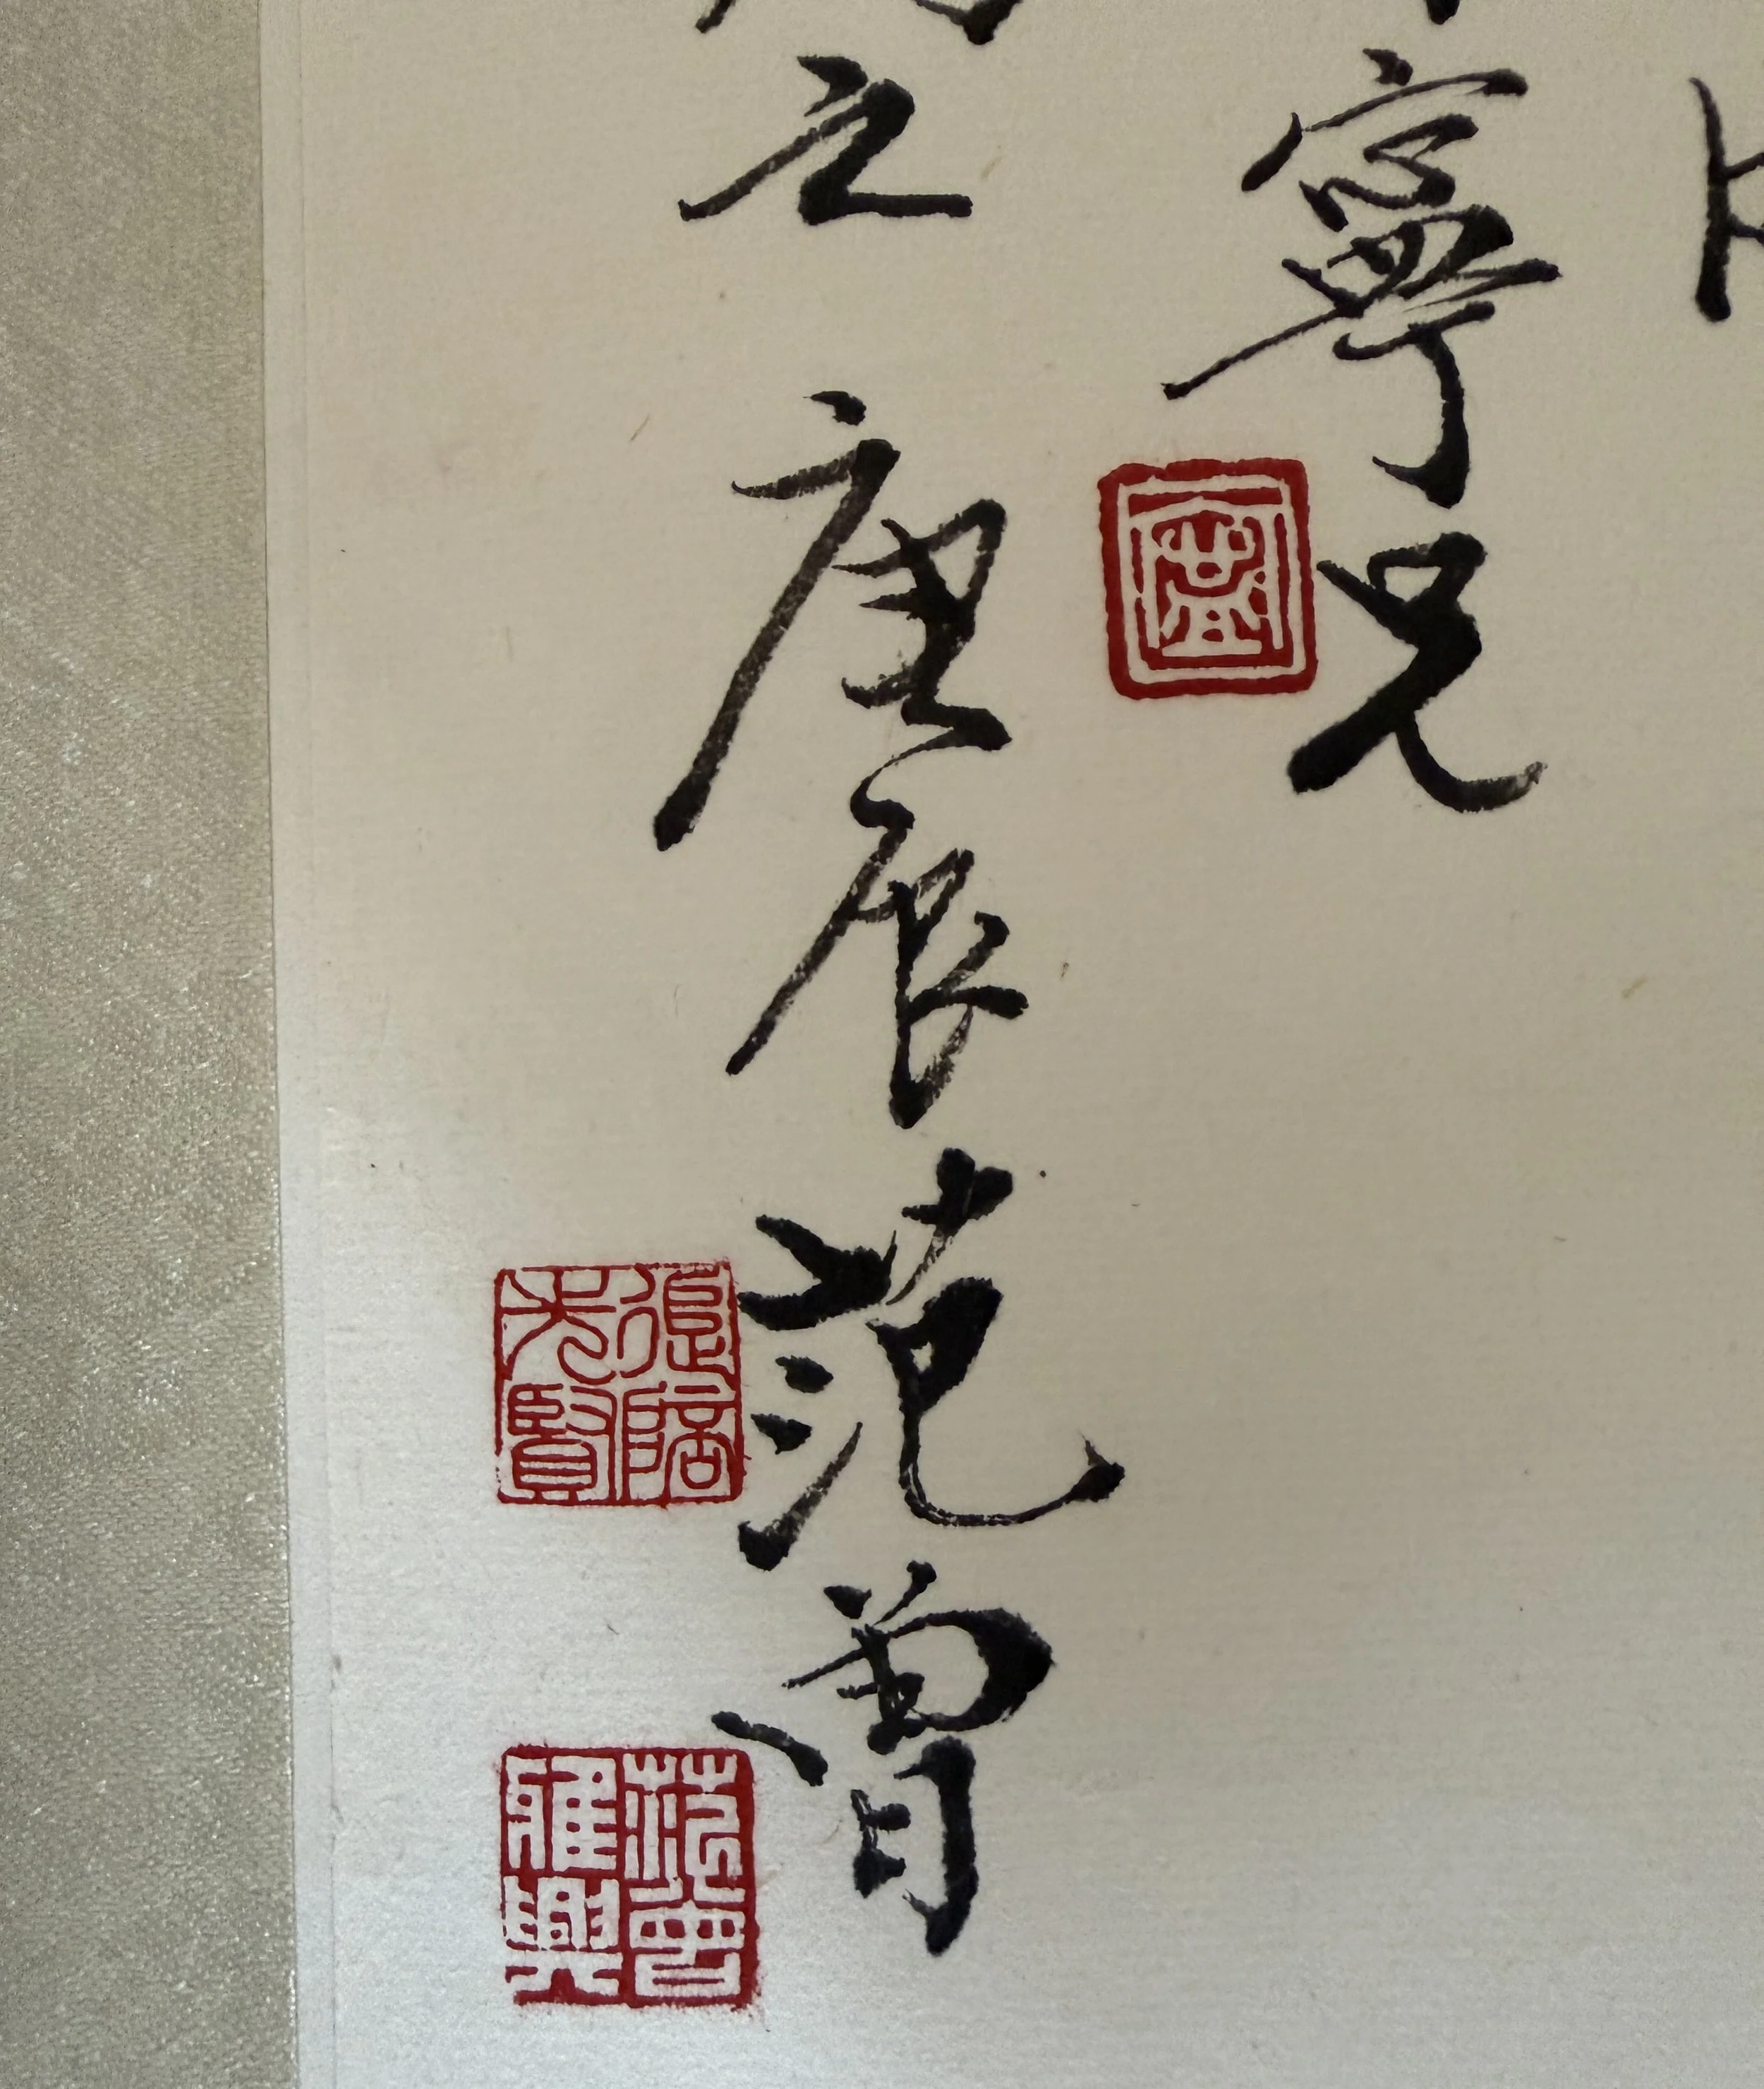 寧兄
之 庚辰 范曾
追陪先賢
范曾雅興